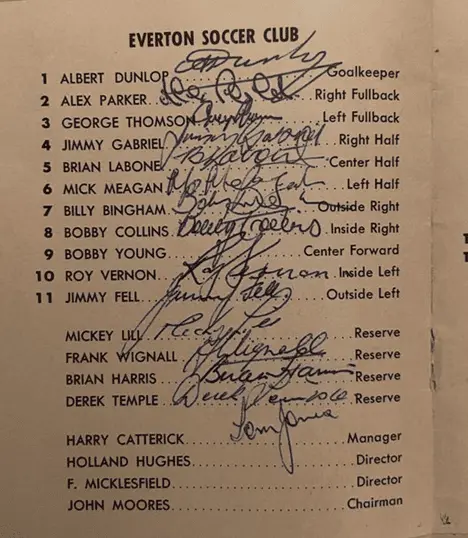 EVERTON SOCCER CLUB
1 ALBERT DUNLOP A Dunlop Goalkeeper
2 ALEX PARKER... Alex Parker Right Fullback
3 GEORGE THOMSON Left Fullback
4 JIMMY GABRIEL Jimmy Gabriel Right Half
5 BRIAN LABONE B Labone Center Half
6 MICK MEAGAN Left Half
7 BILLY BINGHAM Outside Right
8 BOBBY COLLINS Bobby Collins Inside Right
9 BOBBY YOUNG.......... Center Forward
10 ROY VERNON... Roy Vernon Inside Left
11 JIMMY FELL... Jimmy Fell Outside Left
MICKEY LILL Mickey Lill Reserve
FRANK WIGNALL F Wignall Reserve
BRIAN HARRIS... Brian Harris Reserve
DEREK TEMPLE... Derek Temple Reserve
Tom Jones
HARRY CATTERICK.......... Manager
HOLLAND HUGHES.......... Director
F. MICKLESFIELD.......... Director
JOHN MOORES.......... Chairman